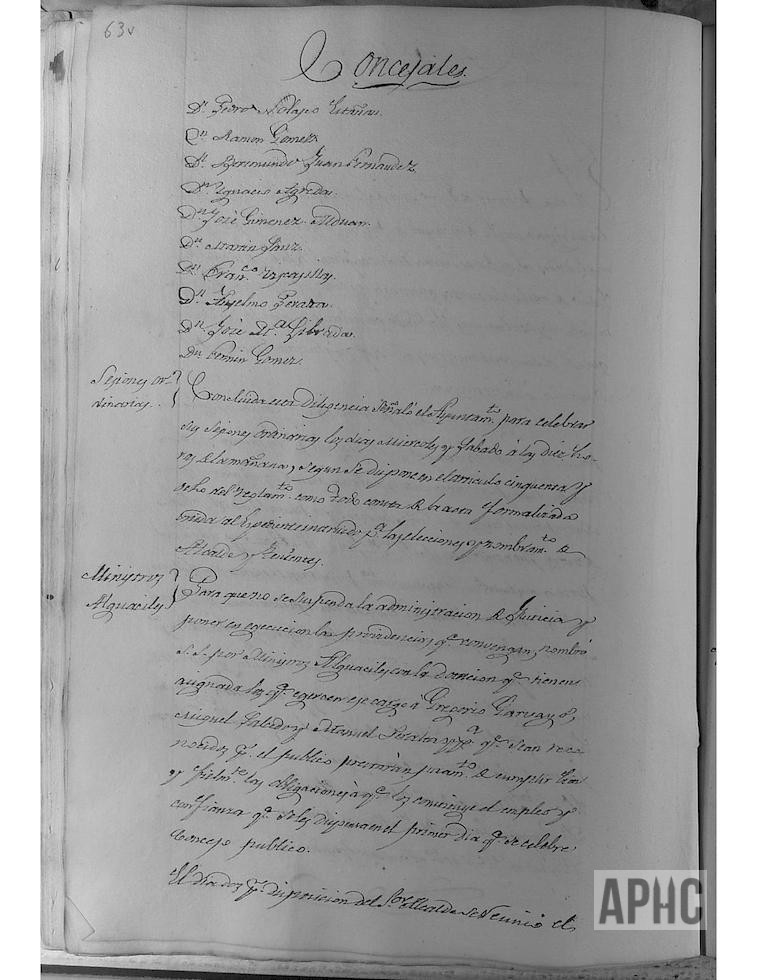 63v
Concejales.
Dn. Pedro
Dn. Ramon Gomez
Dn. Beremundo Juan Fernandez
Dn. Ygnacio Agreda.
Dn. José Gimenez Alduan.
Dn. Martin Sanz.
Dn. Franco.
Dn. Anselmo Peraza.
Dn. José Ma. Librada.
Dn. Fermin Gomez.
Sesiones or-
dinarias.
Concluida esta diligencia Señaló el Ayuntamto. para celebrar
sus sesiones ordinarias los dias Miercoles y Sabado á las diez ho-
ras de la mañana, segun se dispone en el articulo cinquenta y
ocho del reglamto. como todo consta de la acta formalizada
unida al Espediente instruido pa. las elecciones y nombramto. de
Alcalde y Tenientes.
Ministros
Alguaciles
Para que no se suspenda la administracion de Justicia y
poner en egecucion las providencias qe. convengan, nombró
S.S. por Ministros Alguaciles con la dotacion qe. tienen
asignada los qe. egercen ese cargo á Gregorio Garvayo,
Miguel Salcedo y Manuel y pa. qe. sean reco-
nocidos pr. el publico prestarán juramto. de cumplir bien
y fielmte. las obligaciones á qe. los constituye el empleo y
confianza qe. se les dispensa en el primer dia qe. se celebre
Concejo publico.
El dia dos pr. disposicion del Sor. Alcalde se reunió el
APHC